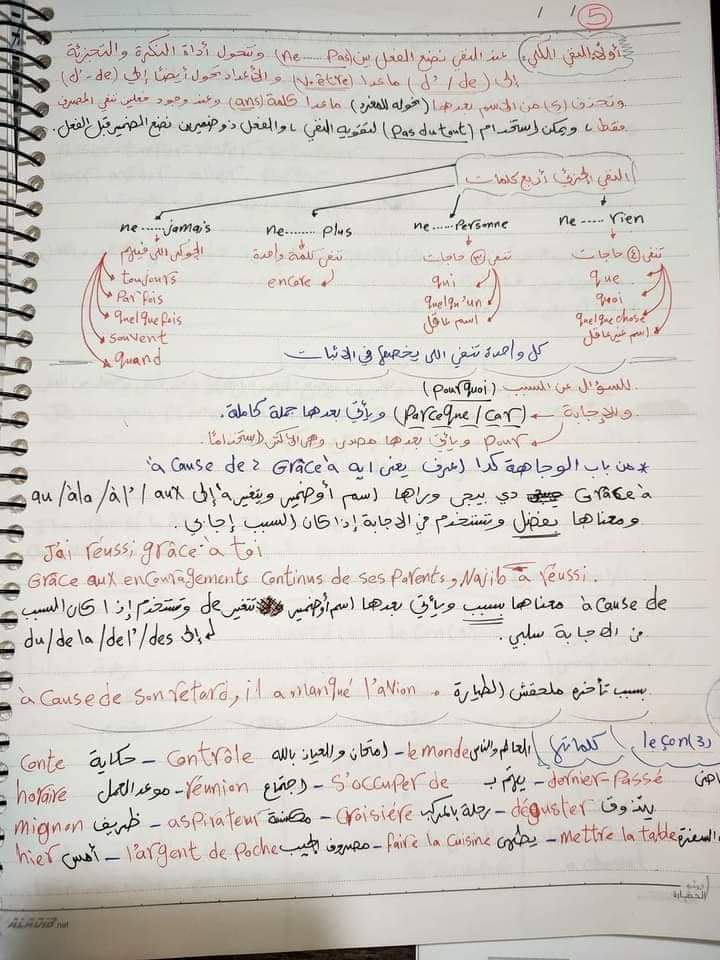 / / 5
أولاً: النفى الكلى: عند النفى نضع الفعل بين (ne.....Pas) وتتحول أداة النكرة والتجزئة
إلى (d' / de) ماعدا (V.être) والأعداد تحول أيضًا إلى (d'-de)
وتحذف (s) من الاسم بعدها (بحوله للمفرد) ماعدا كلمة (ans) وعند وجود فعلين ننفى المصرف
فقط، ويمكن استخدام (Pas du tout) لتقوية النفى، والفعل ذو ضميرين نضع الضمير قبل الفعل.
النفى الجزئى أربع كلمات
ne......Jamais ne........ Plus ne......Personne ne ..... rien
تنفى كلمة واحدة تنفى ③ حاجات تنفى ④ حاجات
toujours encore qui que
Parfois quelqu'un quoi
quelquefois اسم عاقل quelque chose
souvent اسم غير عاقل
quand
كل واحدة تنفى اللى يخصها فى الاثبات
للسؤال عن السبب (Pourquoi)
وللإجابة (Parceque / car) ويأتى بعدها جملة كاملة.
Pour ويأتى بعدها مصدر وهى الأكثر استخدامًا.
* من باب الوجاهة كدا اعرف يعنى ايه Grâce à ؟ à cause de
Grâce à دي بيجى وراها اسم أو ضمير ويتغير à إلى au / à la / à l' / aux
ومعناها بفضل وتستخدم فى الاجابة إذا كان السبب إيجابي.
J'ai réussi grâce à toi
Grâce aux encouragements continus de ses Parents, Najib a réussi.
à cause de معناها بسبب ويأتى بعدها اسم أو ضمير تتغير de وتستخدم إذا كان السبب
من الاجابة سلبي. إلى du / de la / del' / des
à cause de son retard, il a manqué l'avion . بسبب تأخره ملحقش الطيارة
leçon (3) كلماتى
العالم والناس le monde - امتحان والعياذ بالله Contrôle - حكاية Conte
dernier-Passé - يهتم بـ S'occuper de - اجتماع réunion - موعد العمل horaire
يتذوق déguster - رحلة بالمركب Croisière - مكنسة aspirateur - ظريف mignon
السفرة mettre la table - يطهى faire la cuisine - مصروف الجيب l'argent de Poche - أمس hier
ALADIB.net